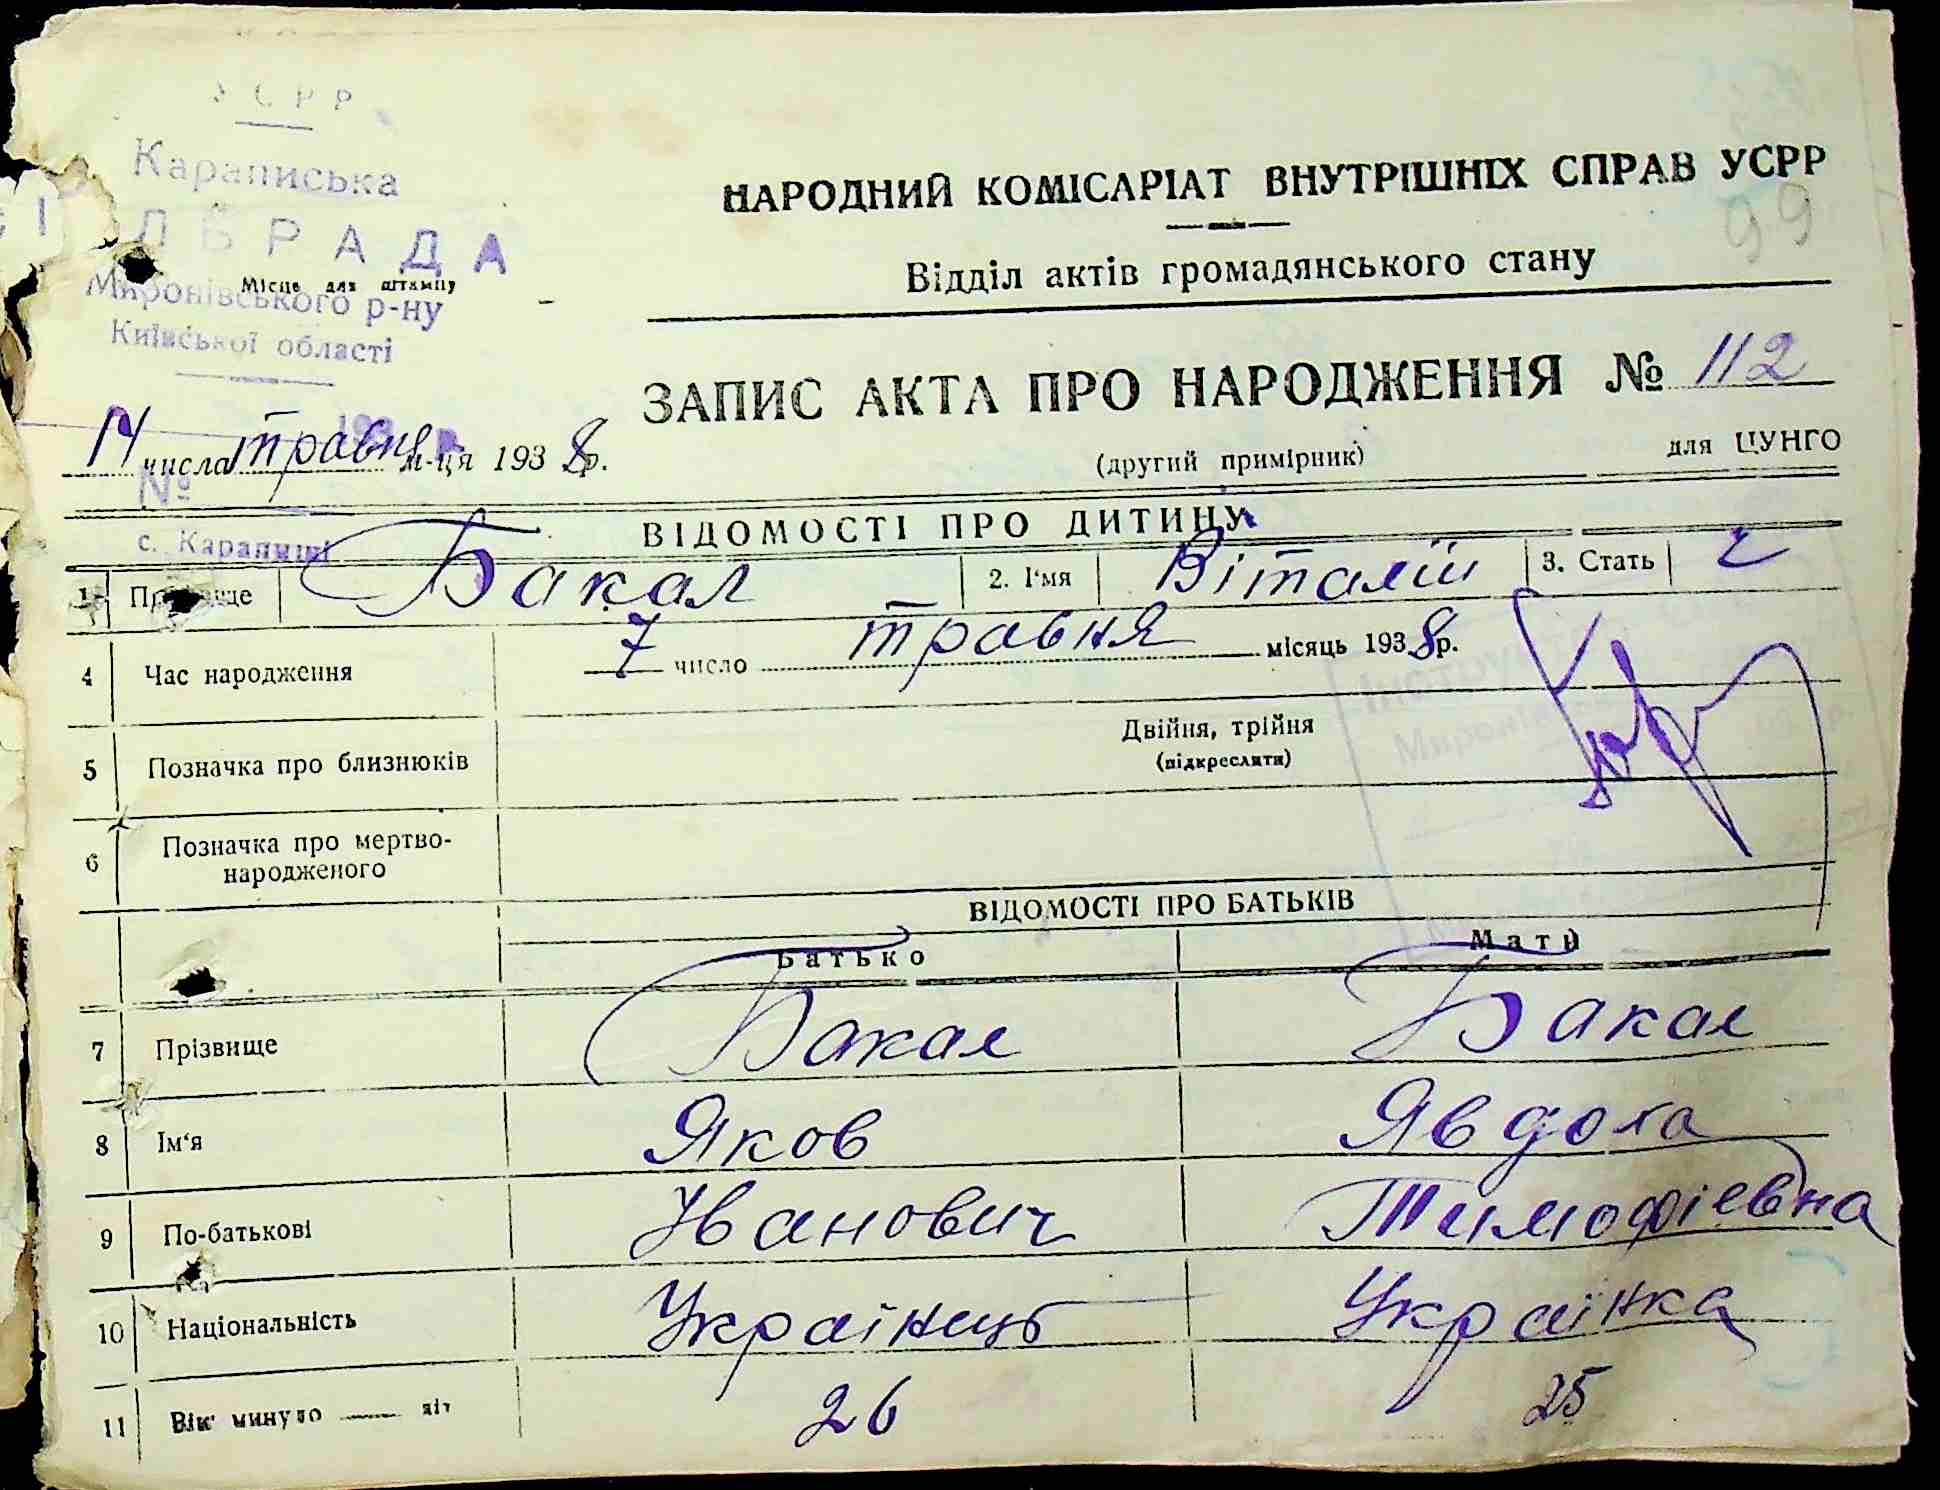 УСРР
Караписька
СІЛЬРАДА
Місце для штампу
Миронівського р-ну
Київської області
НАРОДНИЙ КОМІСАРІАТ ВНУТРІШНІХ СПРАВ УСРР
99
Відділ актів громадянського стану
ЗАПИС АКТА ПРО НАРОДЖЕННЯ № 112
14 числа травня м-ця 1938 р.
(другий примірник)
для ЦУНГО
№
с. Карапиші
ВІДОМОСТІ ПРО ДИТИНУ
1 Прізвище Бакал 2. І'мя Віталій 3. Стать ч
4 Час народження 7 число травня місяць 1938 р.
5 Позначка про близнюків Двійня, трійня
(підкреслити)
6 Позначка про мертво-
народженого
ВІДОМОСТІ ПРО БАТЬКІВ
Батько Мати
7 Прізвище Бакал Бакал
8 Ім'я Яков Явдоха
9 По-батькові Іванович Тимофієвна
10 Національність Українець Українка
11 Вік минуло літ 26 25